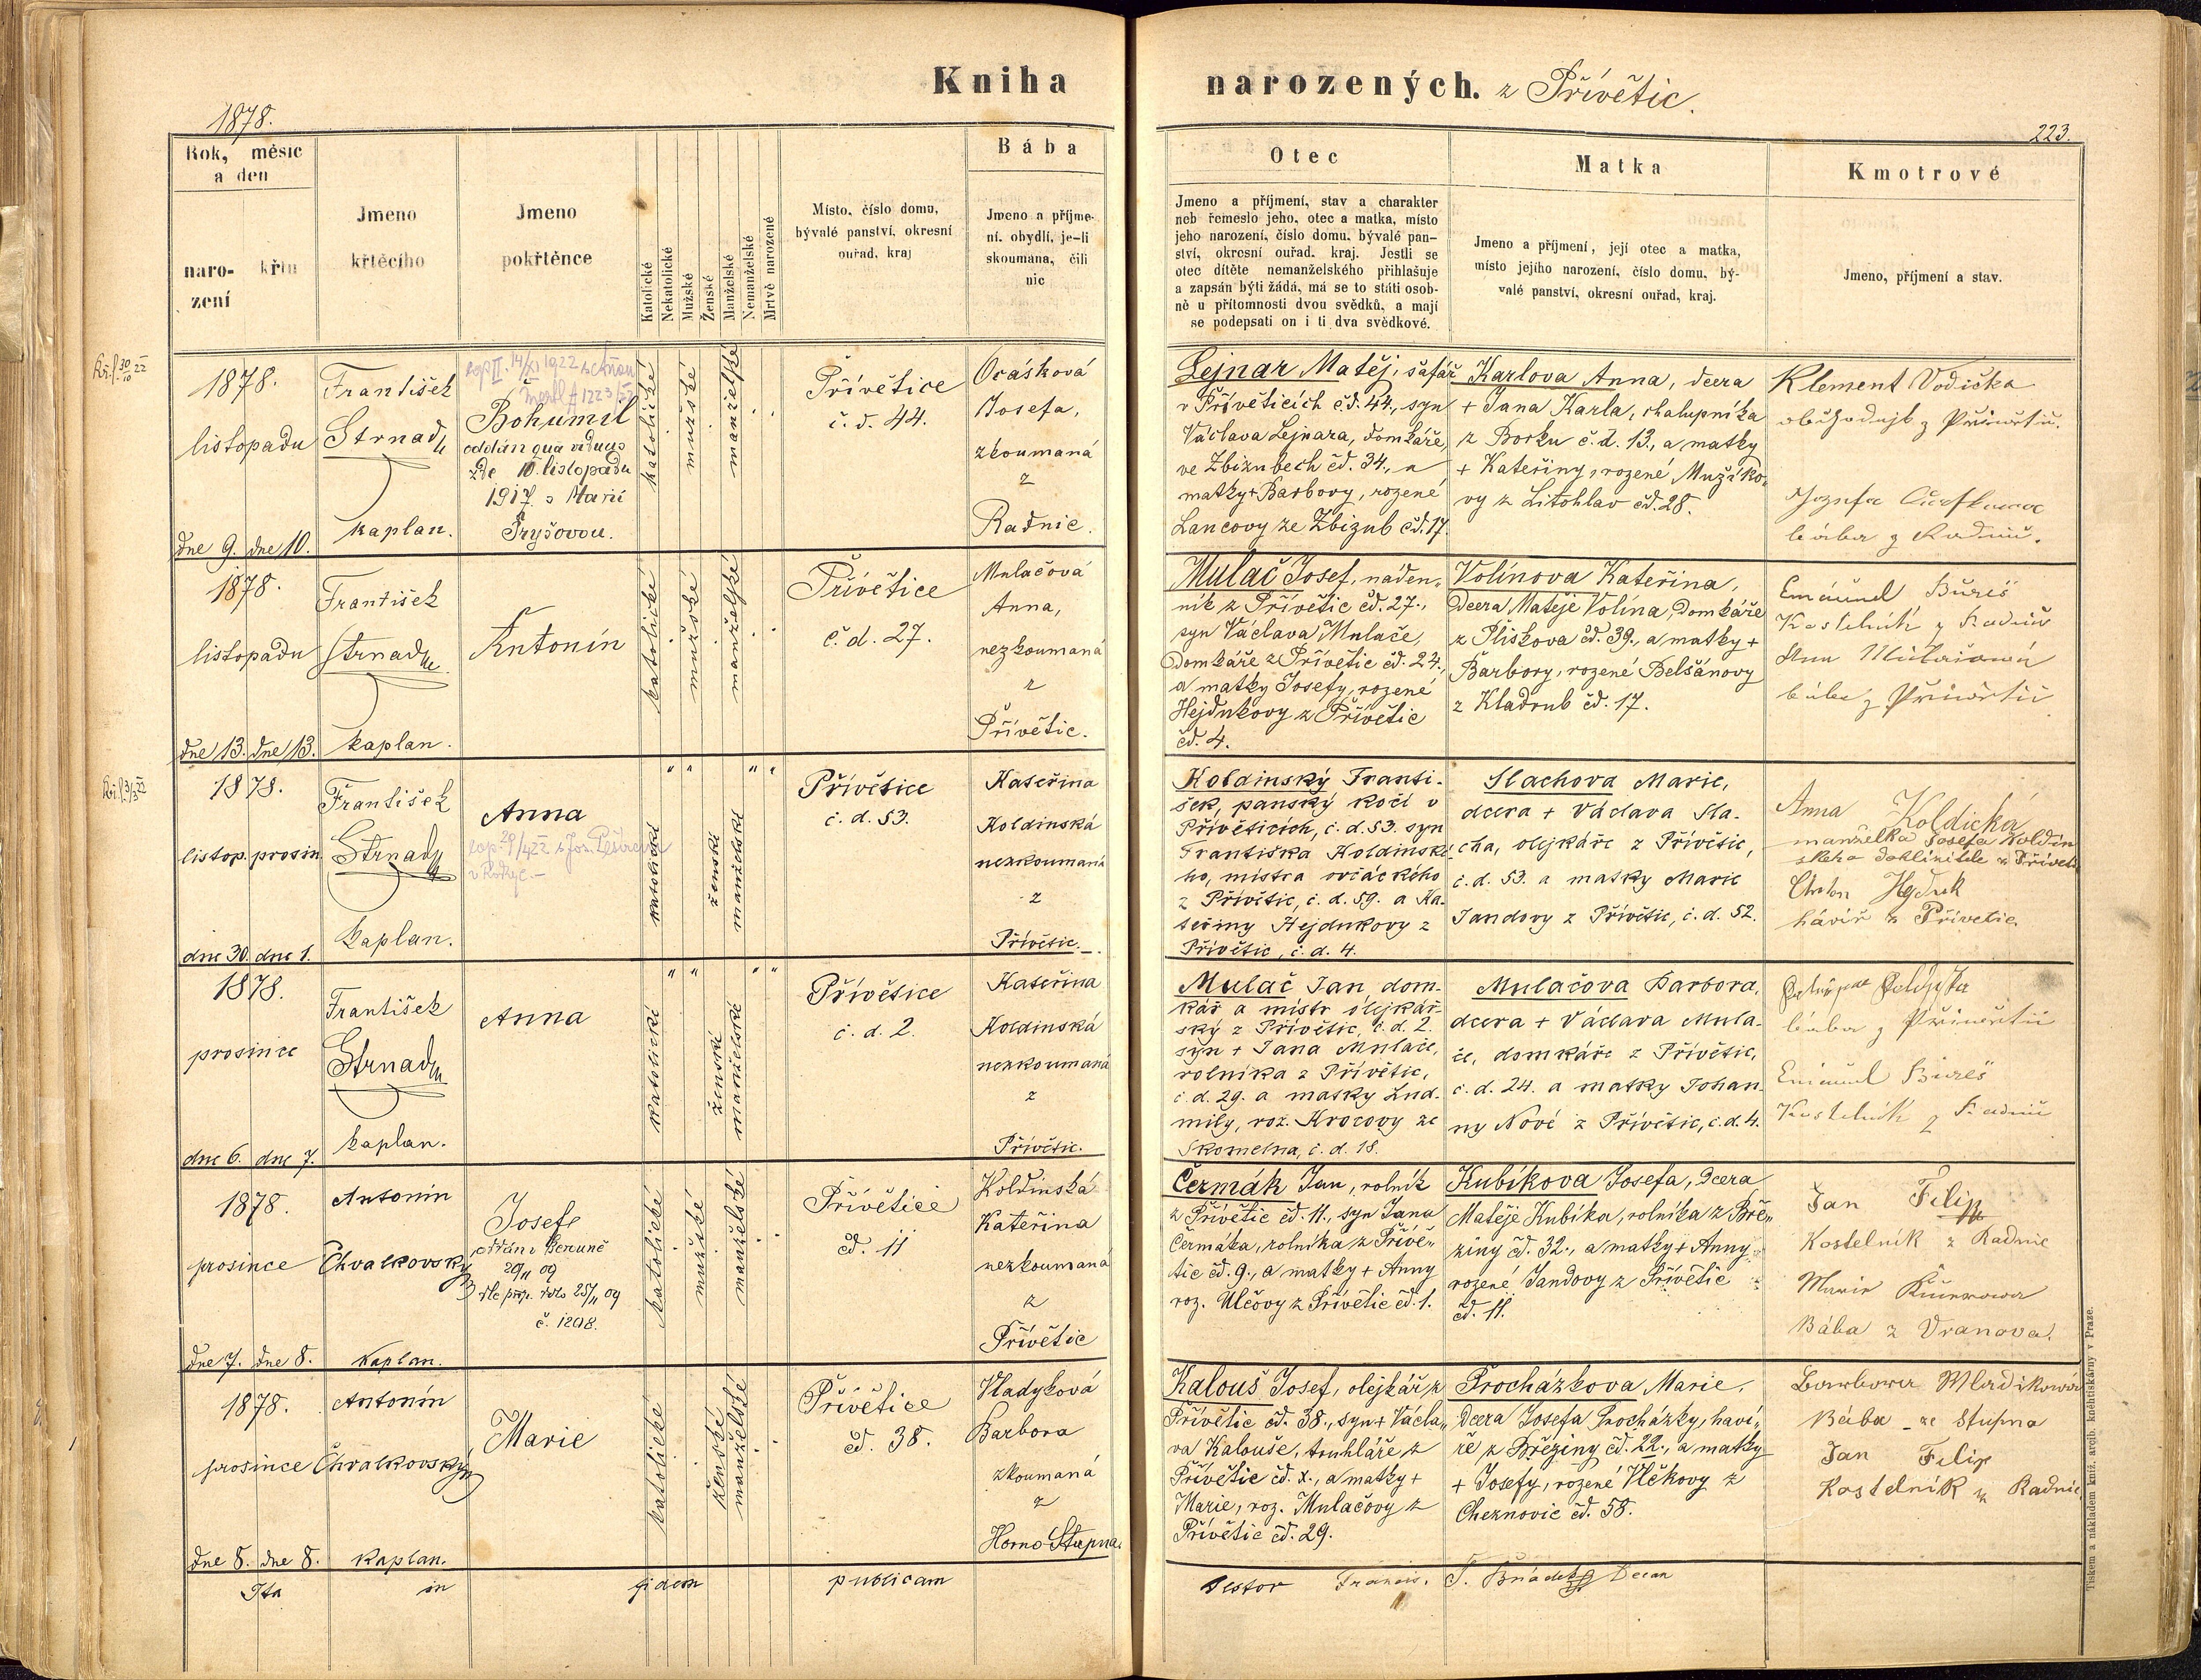 Kniha narozených. z Přívětic.
1878.
223.
Rok, měsíc
a den
naro-
zení
křtu
Jmeno
křtěcího
Jmeno
pokřtěnce
Katolické
Nekatolické
Mužské
Ženské
Manželské
Nemanželské
Mrtvě narozené
Místo, číslo domu,
bývalé panství, okresní
ouřad, kraj
Bába
Jmeno a příjme-
ní, obydlí, je-li
zkoumána, čili
nic
Otec
Jmeno a příjmení, stav a charakter
neb řemeslo jeho, otec a matka, místo
jeho narození, číslo domu, bývalé pan-
ství, okresní ouřad, kraj. Jestli se
otec dítěte nemanželského přihlašuje
a zapsán býti žádá, má se to státi osob-
ně u přítomnosti dvou svědků, a mají
se podepsati on i ti dva svědkové.
Matka
Jmeno a příjmení, její otec a matka,
místo jejího narození, číslo domu, bý-
valé panství, okresní ouřad, kraj.
Kmotrové
Jmeno, příjmení a stav.
1878.
listopadu
dne 9. dne 10.
František
Strnad
kaplan.
Bohumil
oddán qua viduus
zde 10 listopadu
1917 s Marií
Pryšovou.
katolické
mužské
manželské
Přívětice
č. d. 44.
Ocásková
Josefa,
zkoumaná
z
Radnic.
Lejnar Matěj, šafář
v Příveticích čd. 44., syn
Václava Lejnara, domkáře,
ve Zbizubech čd. 34., a
matky + Barbory, rozené
Lancovy ze Zbizub čd. 17.
Karlova Anna, dcera
+ Jana Karla, chalupníka
z Borku č. d. 13., a matky
+ Kateřiny, rozené Mužíko-
vy z Litohlav čd. 28.
Klement Vodička
1878.
listopadu
dne 13. dne 13.
František
Strnad
kaplan.
Antonín
katolické
mužské
manželské
Přívětice
č. d. 27.
Mulačová
Anna,
nezkoumaná
z
Přívětic.
Mulač Josef, naden-
ník z Přívětic čd. 27.,
syn Václava Mulače,
domkáře z Přívětic čd. 24.,
a matky Josefy, rozené
Hejdukovy z Přívětic
čd. 4.
Volínova Kateřina,
dcera Matěje Volína, domkáře
z Plískova čd. 39., a matky +
Barbory, rozené Belšánovy
z Kladrub čd. 17.
Emanuel Bureš
Kostelník z Radnic
Anna Mulačová
bába z Přívětic
1878.
listop. prosin.
dne 30. dne 1.
František
Strnad
kaplan.
Anna
katolické
ženské
manželské
Přívětice
č. d. 53.
Kateřina
Koldinská
nezkoumaná
z
Přívětic.
Koldinský Franti-
šek, panský kočí v
Příveticích, č. d. 53. syn
Františka Koldinské-
ho, mistra ovčáckého
z Přívětic, č. d. 59. a Ka-
teřiny Hejdukovy z
Přívětic, č. d. 4.
Slachova Marie,
dcera + Václava Sla-
cha, olejkáře z Přívětic,
č. d. 53. a matky Marie
Jandovy z Přívětic, č. d. 52.
Anna Koldická
manželka Josefa Koldin
ského z Přívětic
Anton Hejduk
havíř z Přívetic.
1878.
prosince
dne 6. dne 7.
František
Strnad
kaplan.
Anna
katolické
ženské
manželské
Přívětice
č. d. 2.
Kateřina
Koldinská
nezkoumaná
z
Přívětic.
Mulač Jan dom-
kář a mistr olejkář-
ský z Přívětic, č. d. 2.
syn + Jana Mulače,
rolníka z Přívětic,
č. d. 29. a matky Lud-
mily, roz. Krocovy ze
Skomelna, č. d. 18.
Mulačova Barbora,
dcera + Václava Mula-
če, domkáře z Přívětic,
č. d. 24. a matky Johan-
ny Nové z Přívětic, č. d. 4.
bába z Přívětic
Emanuel Bureš
Kostelník z Radnic
1878.
prosince
dne 7. dne 8.
Antonín
Chvalkovský
kaplan.
Josef
oddán v Berouně
20/11 09
dle příp. toho 25/11 09
č. 1208.
katolické
mužské
manželské
Přívětice
čd. 11
Koldinská
Kateřina
nezkoumaná
z
Přívětic
Čermák Jan, rolník
z Přívětic čd. 11., syn Jana
Čermáka, rolníka z Přívě-
tic čd. 9., a matky + Anny
roz. Ulčovy z Přívětic čd. 1.
Kubíkova Josefa, dcera
Matěje Kubíka, rolníka z Bře-
ziny čd. 32., a matky + Anny
rozené Jandovy z Přívětic
čd. 11.
Jan Filip
Kostelník z Radnic
Marie
Bába z Vranova.
1878.
prosince
dne 8. dne 8.
Antonín
Chvalkovský
kaplan.
Marie
katolické
ženské
manželské
Přívětice
čd. 38.
Vladyková
Barbora
zkoumaná
z
Horno-Stupna.
Kalouš Josef, olejkář z
Přívětic čd. 38., syn + Václa-
va Kalouše, truhláře z
Přívětic čd. x., a matky +
Marie, roz. Mulačovy z
Přívětic čd. 29.
Procházkova Marie,
dcera Josefa Procházky, haví-
ře z Březiny čd. 22., a matky
+ Josefy, rozené Vlčkovy z
Cheznovic čd. 58.
Barbora Wladikowa
Bába ze Stupna
Jan Filip
Kostelník z Radnic
Ita in fidem publicam
testor Francis. Decan
Tiskem a nákladem kníž. arcib. knihtiskárny v Praze.